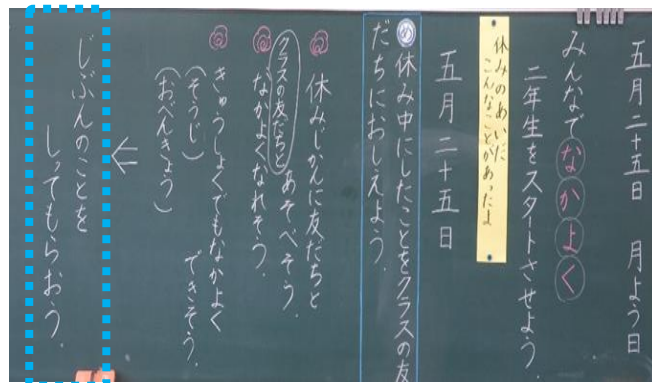 五月二十五日　月よう日
みんなでなかよく
二年生をスタートさせよう。
休みのあいだ
こんなことがあったよ
五月二十五日
め 休み中にしたことをクラスの友
だちにおしえよう。
休みじかんに友だちと
クラスの友だちと あそべそう。
なかよくなれそう。
きゅうしょくでもなかよく
できそう。
(そうじ)
(おべんきょう)
じぶんのことを
しってもらおう。